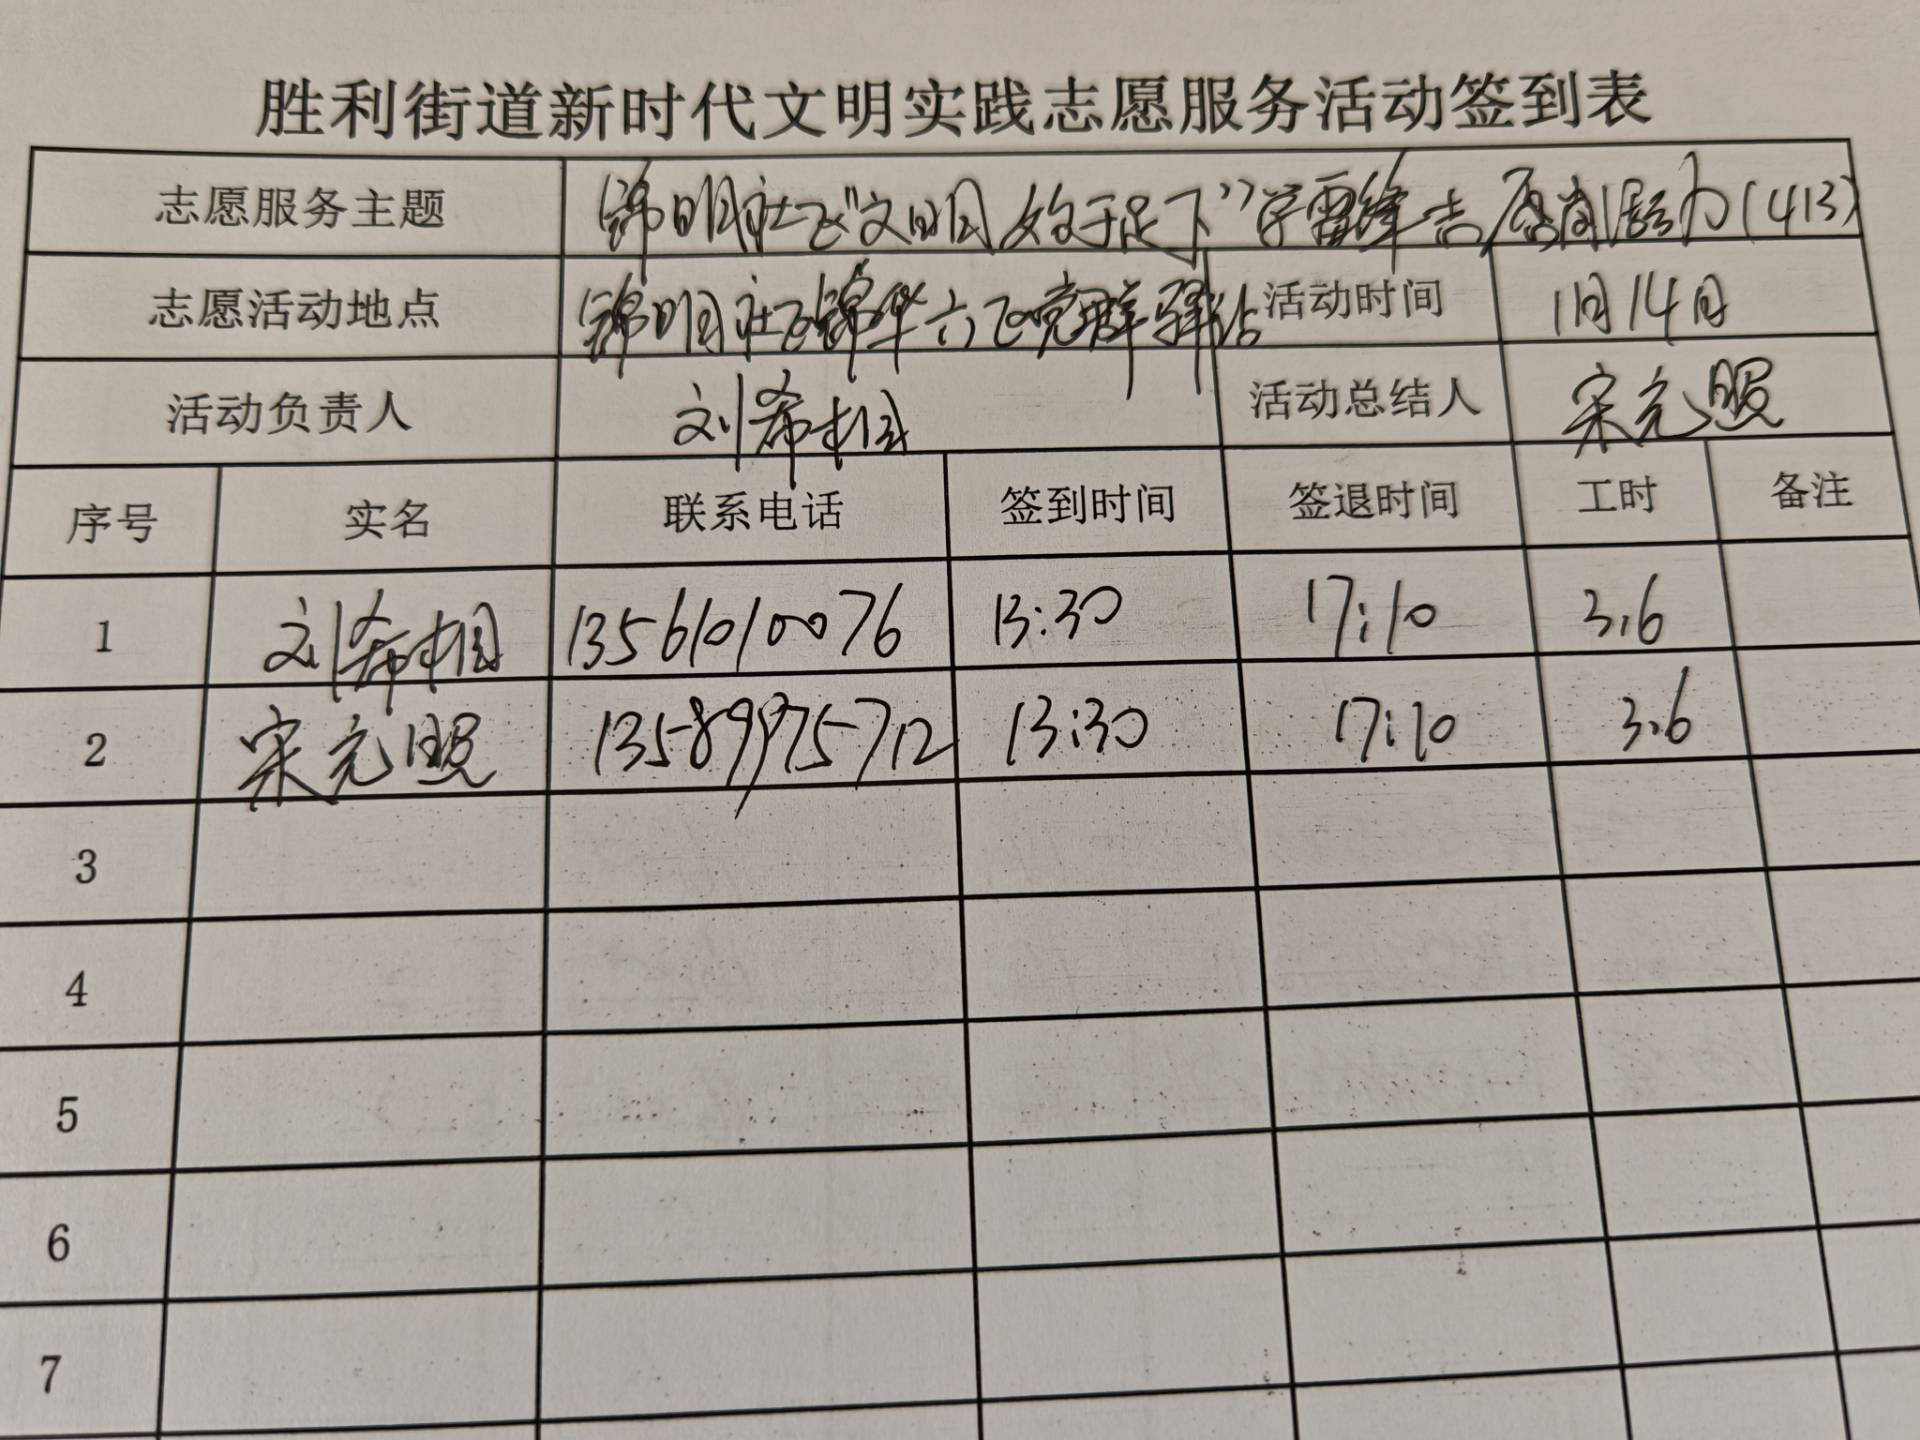 胜利街道新时代文明实践志愿服务活动签到表
志愿服务主题 锦明社区"文明始于足下"学雷锋志愿 活动(413)
志愿活动地点 锦明社区锦华六区党群驿站 活动时间 1月14日
活动负责人 刘希相 活动总结人 宋元照
序号 实名 联系电话 签到时间 签退时间 工时 备注
1 刘希相 13561010076 13:30 17:10 3.6
2 宋元照 13589975712 13:30 17:10 3.6
3
4
5
6
7